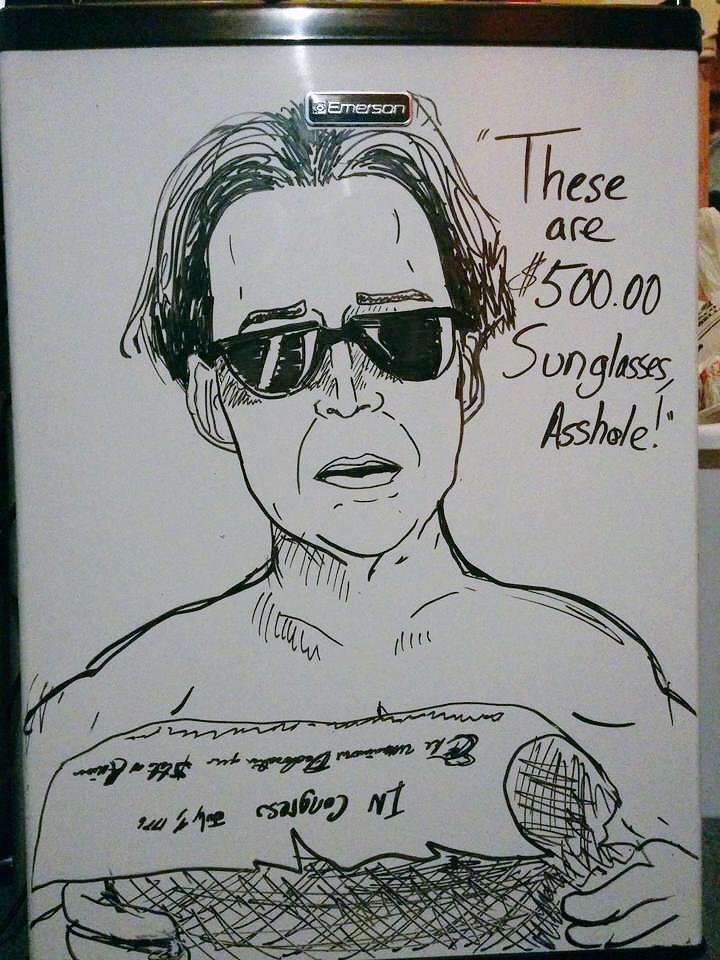 Emerson
"These
are
$500.00
Sunglasses,
Asshole!"
IN Congress July 4, 1776
The unanimous Declaration